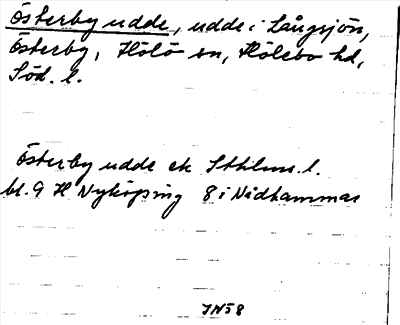 Österby udde, udde i Långsjön,
Österby, Hölö sn, Hölebo hd,
Söd. l.
Österby udde ek Sthlms. l.
bl. 9 H Nyköping 8 i Nidhammar
IN58